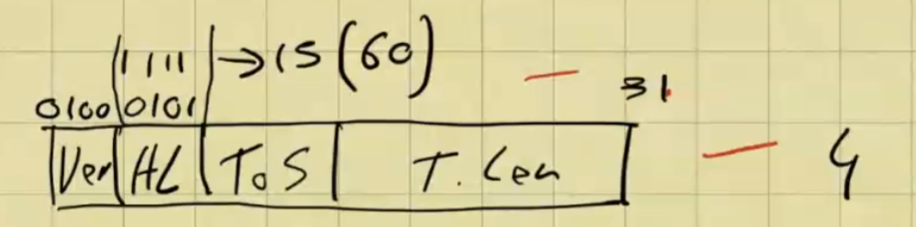 1111 → 15 (60)
0100 0101 31
Ver HL ToS T. Len 4